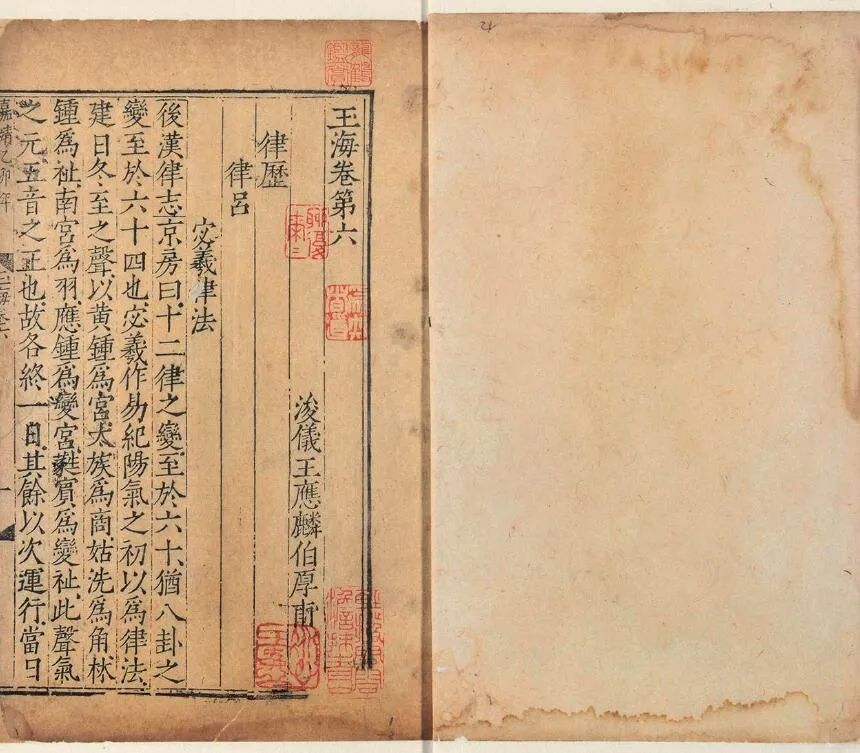 玉海卷第六
浚儀王應麟伯厚甫
律歷
律呂
宓羲律法
後漢律志京房曰十二律之變至於六十猶八卦之
變至於六十四也宓羲作易紀陽氣之初以為律法
建日冬至之聲以黃鍾為宮太族為商姑洗為角林
鍾為祉南宮為羽應鍾為變宮蕤賓為變祉此聲氣
之元五音之正也故各終一日其餘以次運行當日
嘉靖乙卯年
玉海卷六